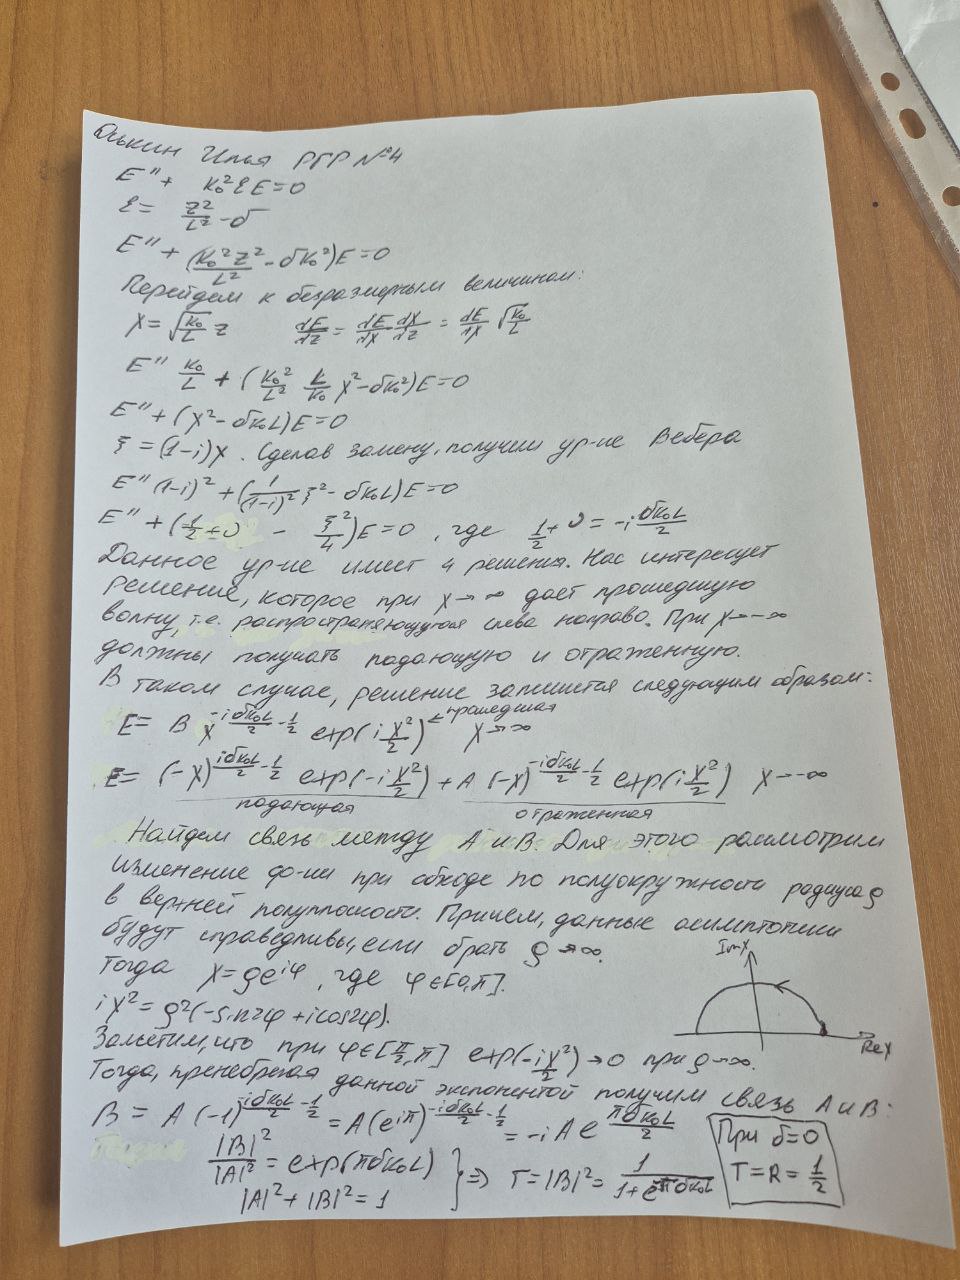 Оськин Илья РГР №4
E'' + k₀²ε E = 0
ε = z²/L² - δ
E'' + (k₀²z²/L² - δk₀²)E = 0
Перейдем к безразмерным величинам:
x = √(k₀/L) z   dE/dz = dE/dx dx/dz = dE/dx √(k₀/L)
E'' k₀/L + (k₀²/L² L/k₀ x² - δk₀²)E = 0
E'' + (x² - δk₀L)E = 0
ξ = (1-i)x. Сделав замену, получим ур-ие Вебера
E''(1-i)² + (1/(1-i)² ξ² - δk₀L)E = 0
E'' + (1/2 + υ - ξ²/4)E = 0, где 1/2 + υ = -i δk₀L/2
Данное ур-ие имеет 4 решения. Нас интересует
решение, которое при x→∞ дает прошедшую
волну, т.е. распространяющуюся слева направо. При x→-∞
должны получать падающую и отраженную.
В таком случае, решение запишется следующим образом:
E = B x^(-iδk₀L/2 - 1/2) exp(i x²/2) ← прошедшая x→∞
E = (-x)^(iδk₀L/2 - 1/2) exp(-i x²/2) + A (-x)^(-iδk₀L/2 - 1/2) exp(i x²/2) x→-∞
падающая отраженная
Найдем связь между A и B. Для этого рассмотрим
изменение ф-ии при обходе по полуокружности радиуса ρ
в верхней полуплоскости. Причем, данные асимптотики
будут справедливы, если брать ρ→∞.
Тогда x = ρe^(iφ), где φ∈[0,π].
ix² = ρ²(-sin2φ + icos2φ).
Im x
Re x
Заметим, что при φ∈[π/2, π] exp(-i x²/2)→0 при ρ→∞.
Тогда, пренебрегая данной экспонентой получим связь A и B:
B = A (-1)^(-iδk₀L/2 - 1/2) = A(e^(iπ))^(-iδk₀L/2 - 1/2) = -i A e^(πδk₀L/2)
|B|²/|A|² = exp(πδk₀L)
|A|² + |B|² = 1 } => T = |B|² = 1/(1+e^(πδk₀L))
При δ=0
T = R = 1/2